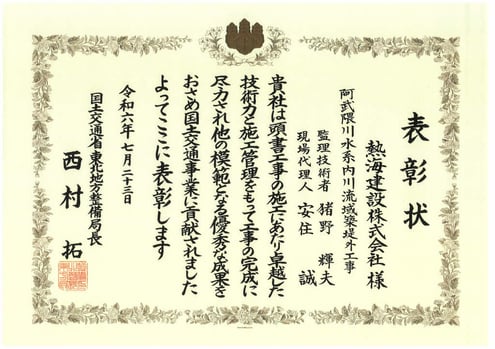 表彰状
熱海建設株式会社 様
阿武隈川水系内川流域築堤外工事
監理技術者 猪野 輝夫
現場代理人 安住 誠
貴社は頭書工事の施工にあたり卓越した
技術力と施工管理をもって工事の完成に
尽力され他の模範となる優秀な成果を
おさめ国土交通事業に貢献されました
よってここに表彰します
令和六年七月二十三日
国土交通省東北地方整備局長
西村 拓